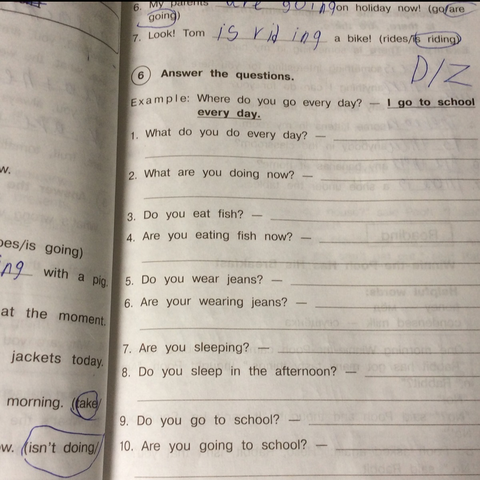 6. My parents are going on holiday now! (go/are
going)
7. Look! Tom is riding a bike! (rides/is riding)
D/Z
6 Answer the questions.
Example: Where do you go every day? — I go to school
every day.
1. What do you do every day? —
2. What are you doing now? —
3. Do you eat fish? —
4. Are you eating fish now? —
5. Do you wear jeans? —
6. Are your wearing jeans? —
7. Are you sleeping? —
8. Do you sleep in the afternoon? —
9. Do you go to school? —
10. Are you going to school? —
w.
oes/is going)
ing with a pig.
at the moment.
jackets today.
morning. (take/
w. (isn't doing/